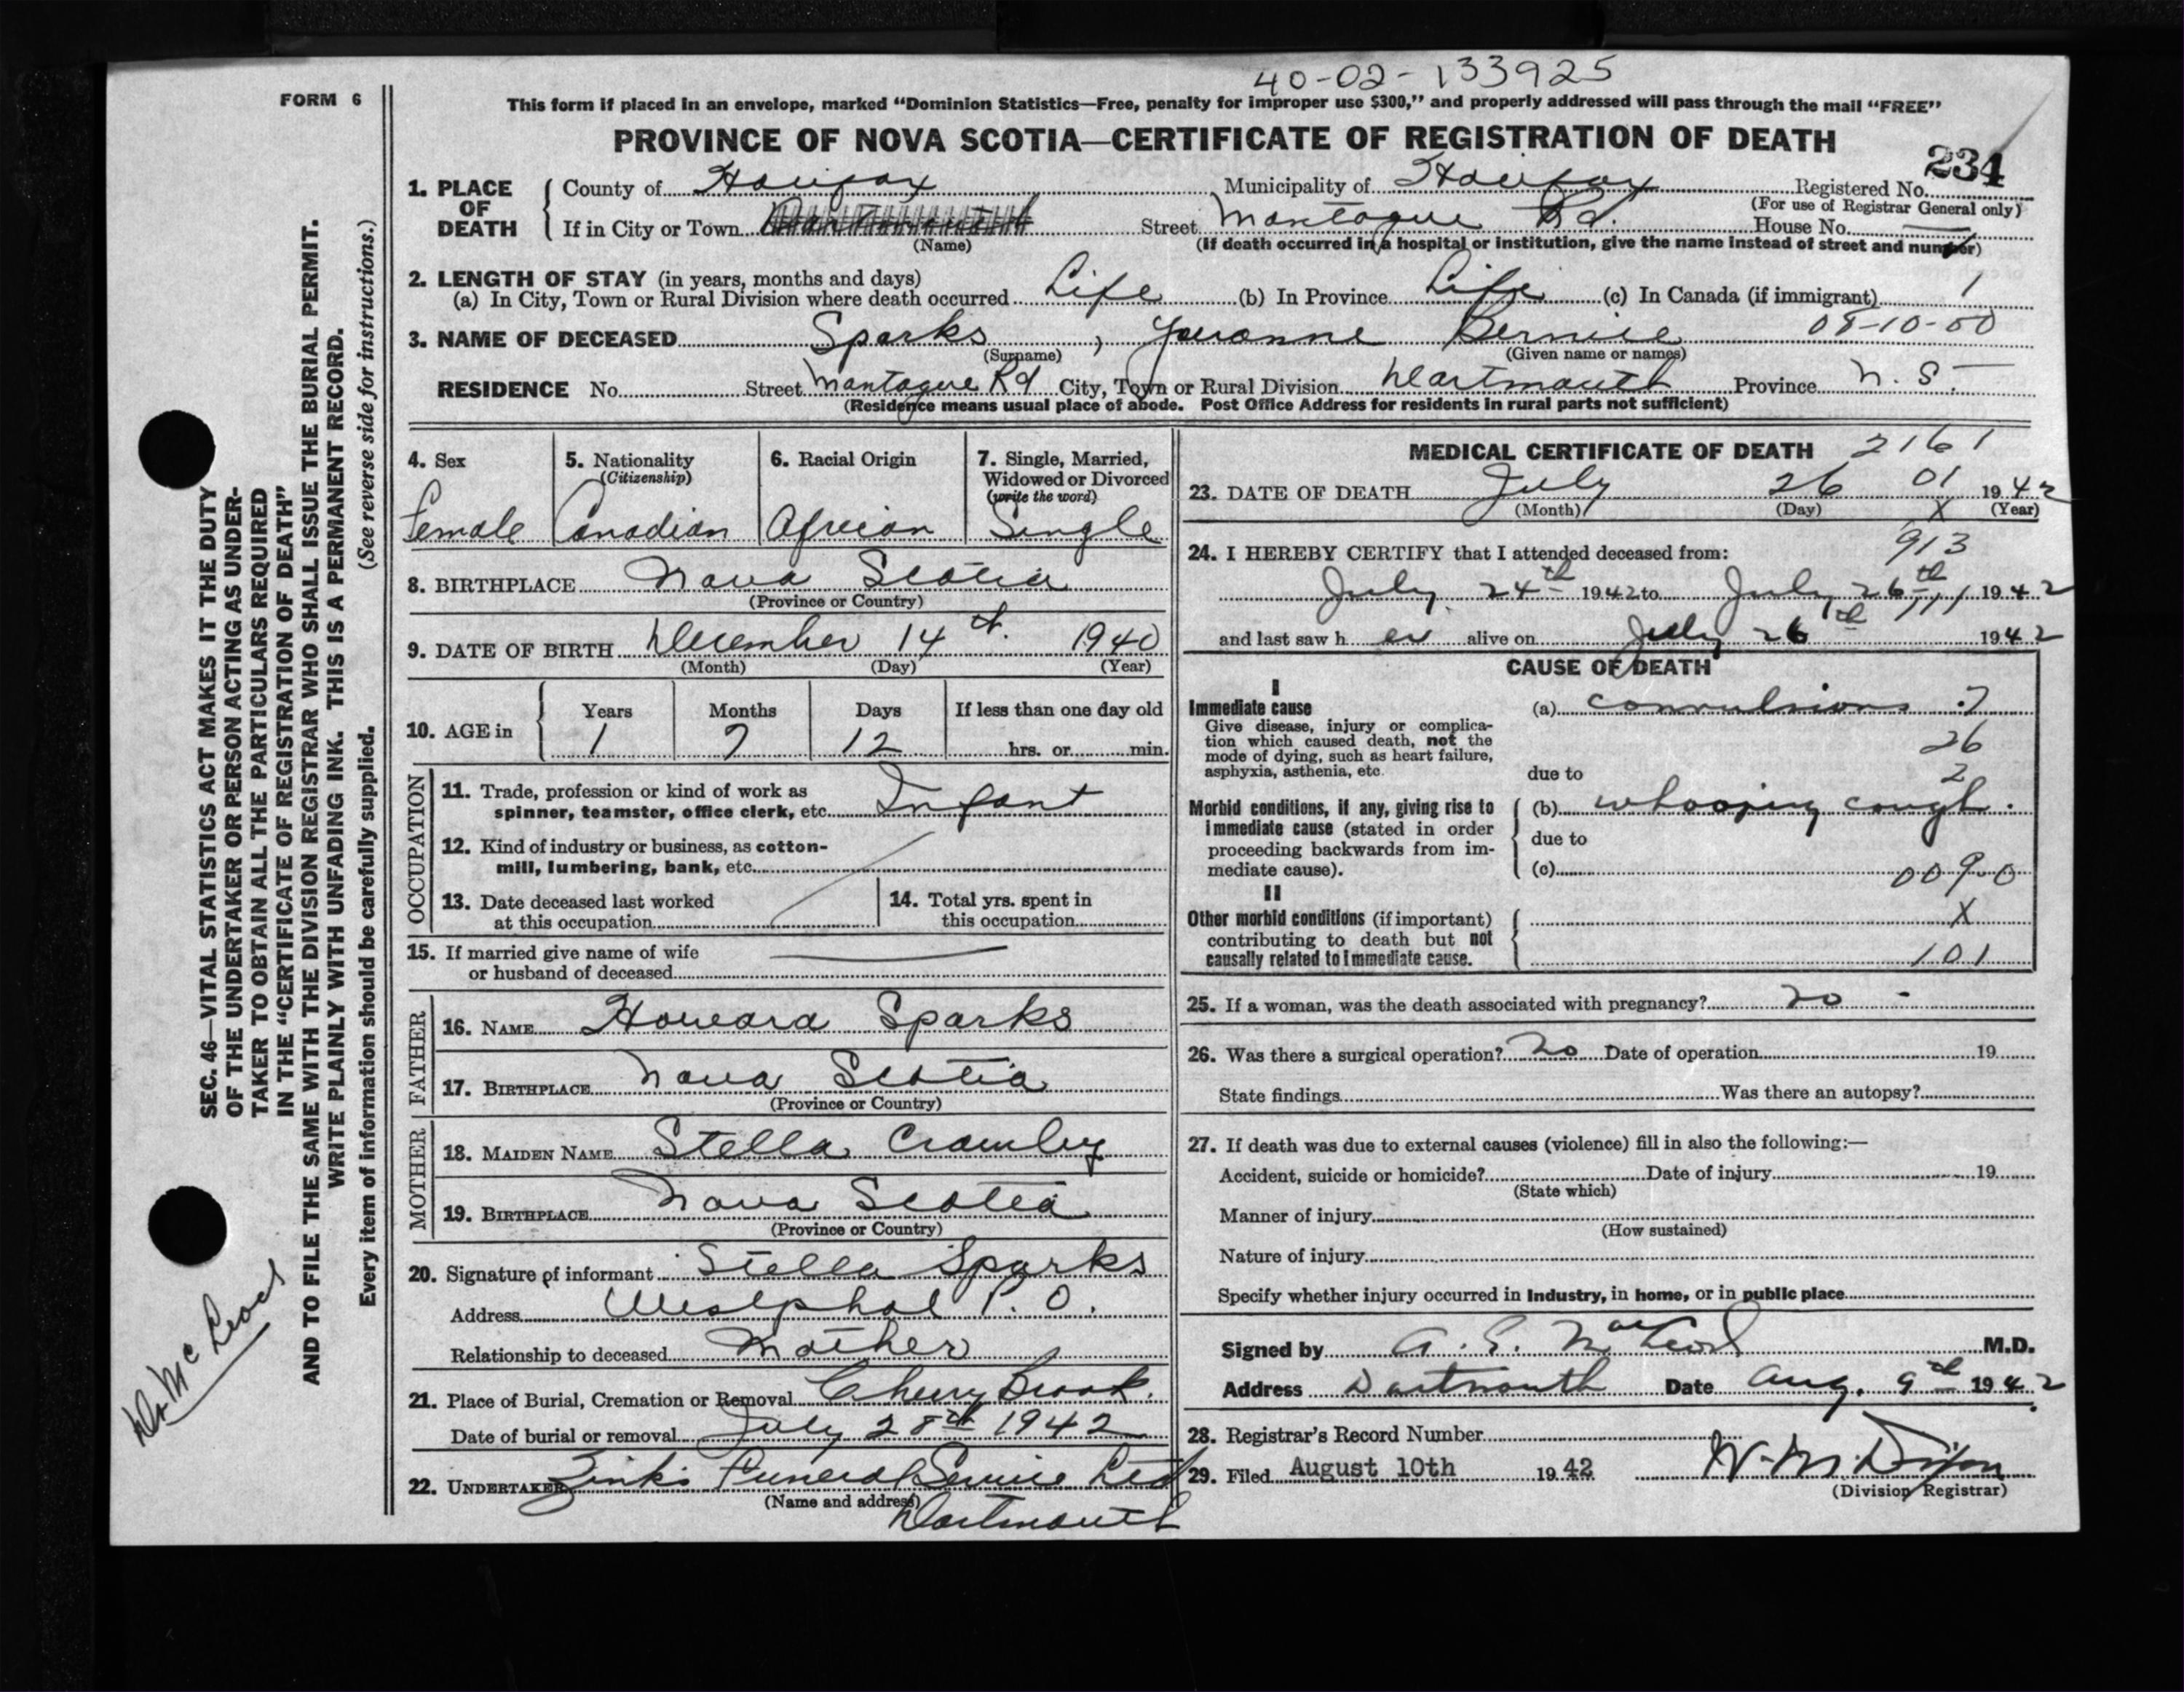 40-02-133925
FORM 6
This form if placed in an envelope, marked “Dominion Statistics—Free, penalty for improper use $300,” and properly addressed will pass through the mail “FREE”
PROVINCE OF NOVA SCOTIA—CERTIFICATE OF REGISTRATION OF DEATH
234
1. PLACE OF DEATH County of Halifax Municipality of Halifax Registered No.
(For use of Registrar General only)
If in City or Town Street Montague Rd. House No.
(Name) (If death occurred in a hospital or institution, give the name instead of street and number)
2. LENGTH OF STAY (in years, months and days)
(a) In City, Town or Rural Division where death occurred Life (b) In Province Life (c) In Canada (if immigrant) 1
3. NAME OF DECEASED Sparks, Yvonne Bernice 08-10-00
(Surname) (Given name or names)
RESIDENCE No. Street Montague Rd City, Town or Rural Division Dartmouth Province N. S.
(Residence means usual place of abode. Post Office Address for residents in rural parts not sufficient)
4. Sex
Female
5. Nationality
(Citizenship)
Canadian
6. Racial Origin
African
7. Single, Married,
Widowed or Divorced
(write the word)
Single
8. BIRTHPLACE Nova Scotia
(Province or Country)
9. DATE OF BIRTH December 14th. 1940
(Month) (Day) (Year)
10. AGE in
Years Months Days If less than one day old
1 7 12 hrs. or min.
OCCUPATION
11. Trade, profession or kind of work as
spinner, teamster, office clerk, etc. Infant
12. Kind of industry or business, as cotton-
mill, lumbering, bank, etc.
13. Date deceased last worked
at this occupation
14. Total yrs. spent in
this occupation
15. If married give name of wife
or husband of deceased
FATHER
16. NAME Howard Sparks
17. BIRTHPLACE Nova Scotia
(Province or Country)
MOTHER
18. MAIDEN NAME Stella Cromley
19. BIRTHPLACE Nova Scotia
(Province or Country)
20. Signature of informant Stella Sparks
Address Westphal P. O.
Relationship to deceased Mother
21. Place of Burial, Cremation or Removal Cherry Brook.
Date of burial or removal July 28th 1942
22. UNDERTAKER Zink's Funeral Service Ltd
(Name and address)
Dartmouth
MEDICAL CERTIFICATE OF DEATH 2161
23. DATE OF DEATH July 26 01 1942
(Month) (Day) X (Year)
24. I HEREBY CERTIFY that I attended deceased from: 913
July 24th 1942 to July 26th 1942
111
and last saw her alive on July 26th 1942
CAUSE OF DEATH
I
Immediate cause
Give disease, injury or complica-
tion which caused death, not the
mode of dying, such as heart failure,
asphyxia, asthenia, etc.
(a) convulsions .7
26
due to 2
Morbid conditions, if any, giving rise to
immediate cause (stated in order
proceeding backwards from im-
mediate cause).
(b) whooping cough.
due to
(c) 009.0
II
Other morbid conditions (if important)
contributing to death but not
causally related to immediate cause.
X
101
25. If a woman, was the death associated with pregnancy? no -
26. Was there a surgical operation? no Date of operation 19
State findings Was there an autopsy?
27. If death was due to external causes (violence) fill in also the following:—
Accident, suicide or homicide? Date of injury 19
(State which)
Manner of injury
(How sustained)
Nature of injury
Specify whether injury occurred in Industry, in home, or in public place
Signed by A. E. MacLeod M.D.
Address Dartmouth Date Aug. 9th 1942.
28. Registrar's Record Number
29. Filed August 10th 1942 W. M. Dixon
(Division Registrar)
SEC. 46—VITAL STATISTICS ACT MAKES IT THE DUTY
OF THE UNDERTAKER OR PERSON ACTING AS UNDER-
TAKER TO OBTAIN ALL THE PARTICULARS REQUIRED
IN THE “CERTIFICATE OF REGISTRATION OF DEATH”
AND TO FILE THE SAME WITH THE DIVISION REGISTRAR WHO SHALL ISSUE THE BURIAL PERMIT.
WRITE PLAINLY WITH UNFADING INK. THIS IS A PERMANENT RECORD.
Every item of information should be carefully supplied. (See reverse side for instructions.)
Dr McLeod